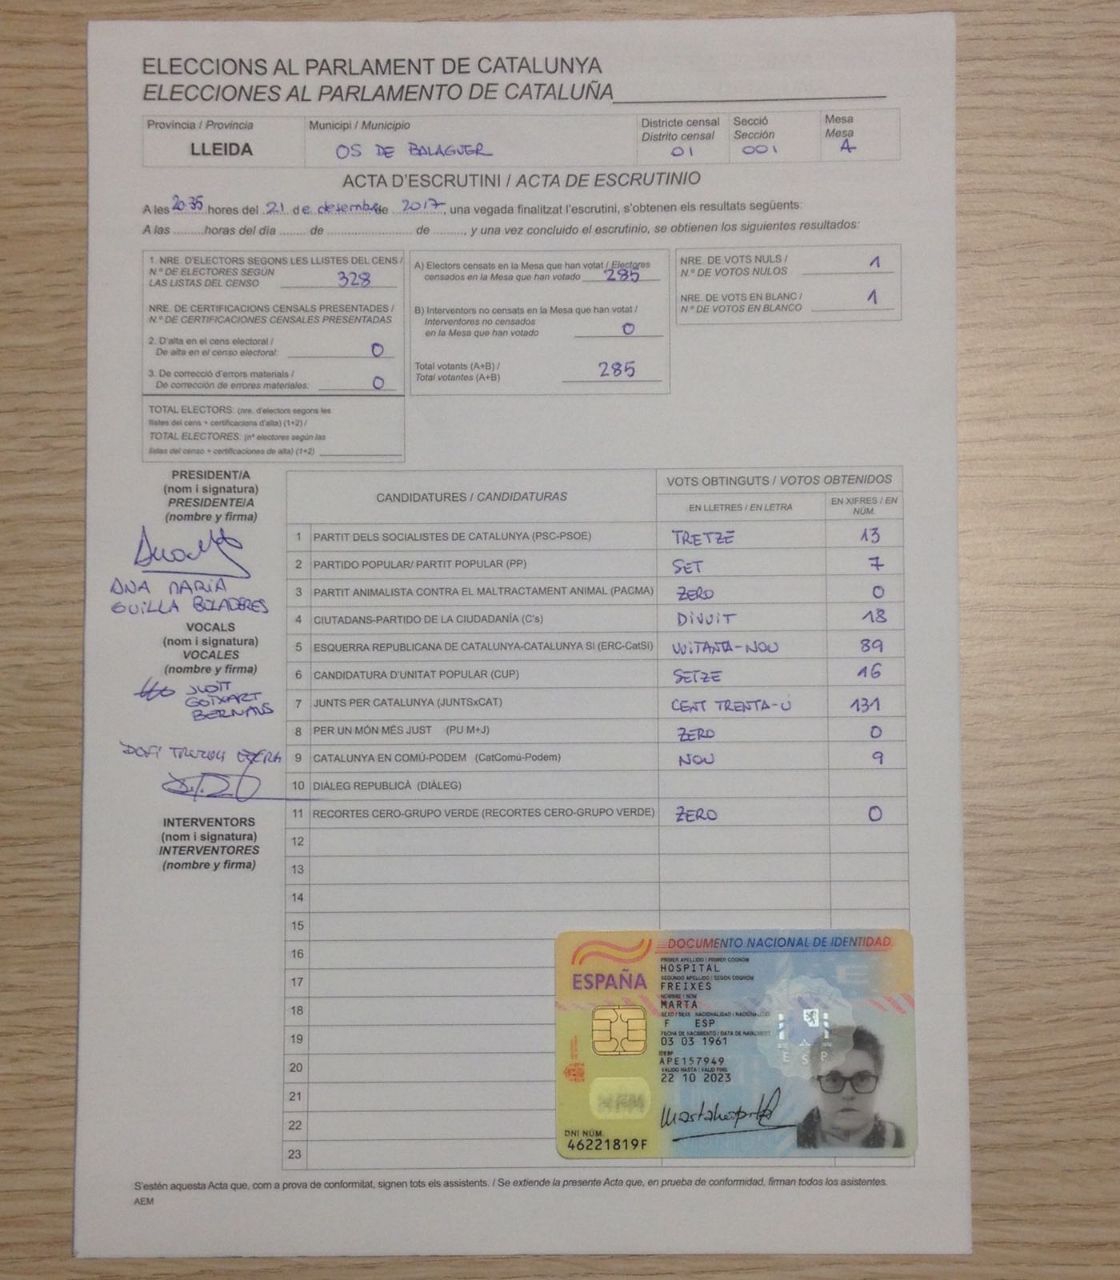 ELECCIONS AL PARLAMENT DE CATALUNYA
ELECCIONES AL PARLAMENTO DE CATALUÑA
Província / Provincia
LLEIDA
Municipi / Municipio
OS DE BALAGUER
Districte censal
Distrito censal
01
Secció
Sección
001
Mesa
Mesa
A
ACTA D'ESCRUTINI / ACTA DE ESCRUTINIO
A les 20:35 hores del 21 de desembre de 2017, una vegada finalitzat l'escrutini, s'obtenen els resultats següents:
A las ........ horas del día ....... de ................ de ........, y una vez concluido el escrutinio, se obtienen los siguientes resultados:
1. NRE. D'ELECTORS SEGONS LES LLISTES DEL CENS /
N.º DE ELECTORES SEGÚN
LAS LISTAS DEL CENSO 328
NRE. DE CERTIFICACIONS CENSALS PRESENTADES /
N.º DE CERTIFICACIONES CENSALES PRESENTADAS
2. D'alta en el cens electoral /
De alta en el censo electoral: 0
3. De correcció d'errors materials /
De corrección de errores materiales: 0
TOTAL ELECTORS: (nre. d'electors segons les
llistes del cens + certificacions d'alta) (1+2) /
TOTAL ELECTORES: (nº electores según las
listas del censo + certificaciones de alta) (1+2)
A) Electors censats en la Mesa que han votat / Electores
censados en la Mesa que han votado 285
B) Interventors no censats en la Mesa que han votat /
Interventores no censados
en la Mesa que han votado 0
Total votants (A+B) /
Total votantes (A+B) 285
NRE. DE VOTS NULS /
N.º DE VOTOS NULOS 1
NRE. DE VOTS EN BLANC /
N.º DE VOTOS EN BLANCO 1
PRESIDENT/A
(nom i signatura)
PRESIDENTE/A
(nombre y firma)
ANA MARIA
GUILLA BOLADERES
VOCALS
(nom i signatura)
VOCALES
(nombre y firma)
JUDIT
GOIXART
BERNAUS
INTERVENTORS
(nom i signatura)
INTERVENTORES
(nombre y firma)
CANDIDATURES / CANDIDATURAS
VOTS OBTINGUTS / VOTOS OBTENIDOS
EN LLETRES / EN LETRA
EN XIFRES / EN NÚM.
1 PARTIT DELS SOCIALISTES DE CATALUNYA (PSC-PSOE) TRETZE 13
2 PARTIDO POPULAR/ PARTIT POPULAR (PP) SET 7
3 PARTIT ANIMALISTA CONTRA EL MALTRACTAMENT ANIMAL (PACMA) ZERO 0
4 CIUTADANS-PARTIDO DE LA CIUDADANÍA (C's) DIVUIT 18
5 ESQUERRA REPUBLICANA DE CATALUNYA-CATALUNYA SI (ERC-CatSí) VUITANTA-NOU 89
6 CANDIDATURA D'UNITAT POPULAR (CUP) SETZE 16
7 JUNTS PER CATALUNYA (JUNTSxCAT) CENT TRENTA-Ú 131
8 PER UN MÓN MÉS JUST (PU M+J) ZERO 0
9 CATALUNYA EN COMÚ-PODEM (CatComú-Podem) NOU 9
10 DIÀLEG REPUBLICÀ (DIÀLEG)
11 RECORTES CERO-GRUPO VERDE (RECORTES CERO-GRUPO VERDE) ZERO 0
12
13
14
15
16
17
18
19
20
21
22
23
DOCUMENTO NACIONAL DE IDENTIDAD
ESPAÑA
PRIMER APELLIDO / PRIMER COGNOM
HOSPITAL
SEGUNDO APELLIDO / SEGON COGNOM
FREIXES
NOMBRE / NOM
MARTA
SEXO / SEXE NACIONALIDAD / NACIONALITAT
F ESP
FECHA DE NACIMIENTO / DATA DE NAIXEMENT
03 03 1961
IDESP
APE157949
VÁLIDO HASTA / VÀLID FINS
22 10 2023
ESP
DNI NÚM.
46221819F
S'estén aquesta Acta que, com a prova de conformitat, signen tots els assistents. / Se extiende la presente Acta que, en prueba de conformidad, firman todos los asistentes.
AEM